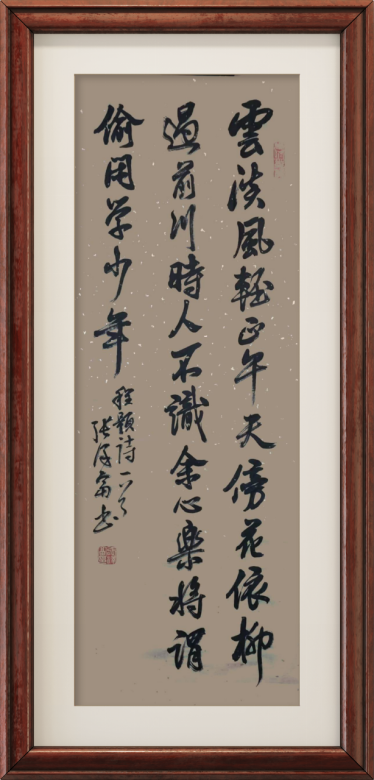 雲淡風輕正午天傍花依柳
過前川時人不識余心樂將謂
偷用學少年
程顥詩一首
張
書